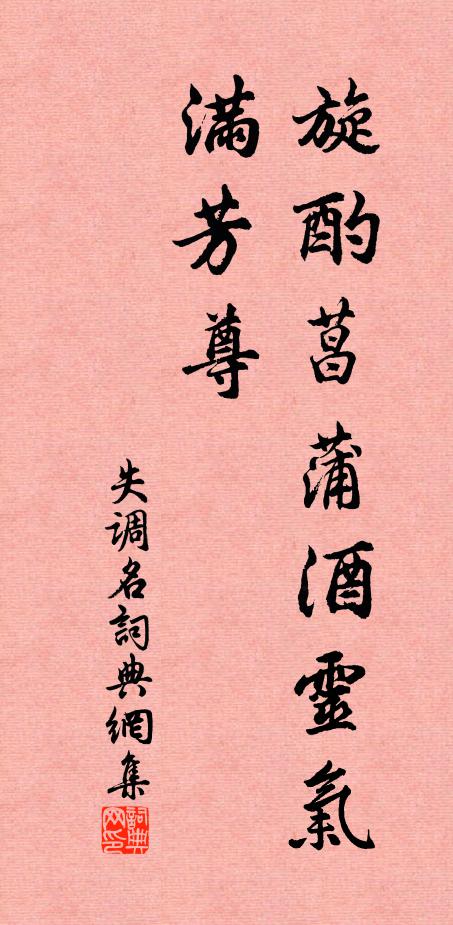 旋酌菖蒲酒靈氣
滿芳尊
失调名詞典網集
詞典网印